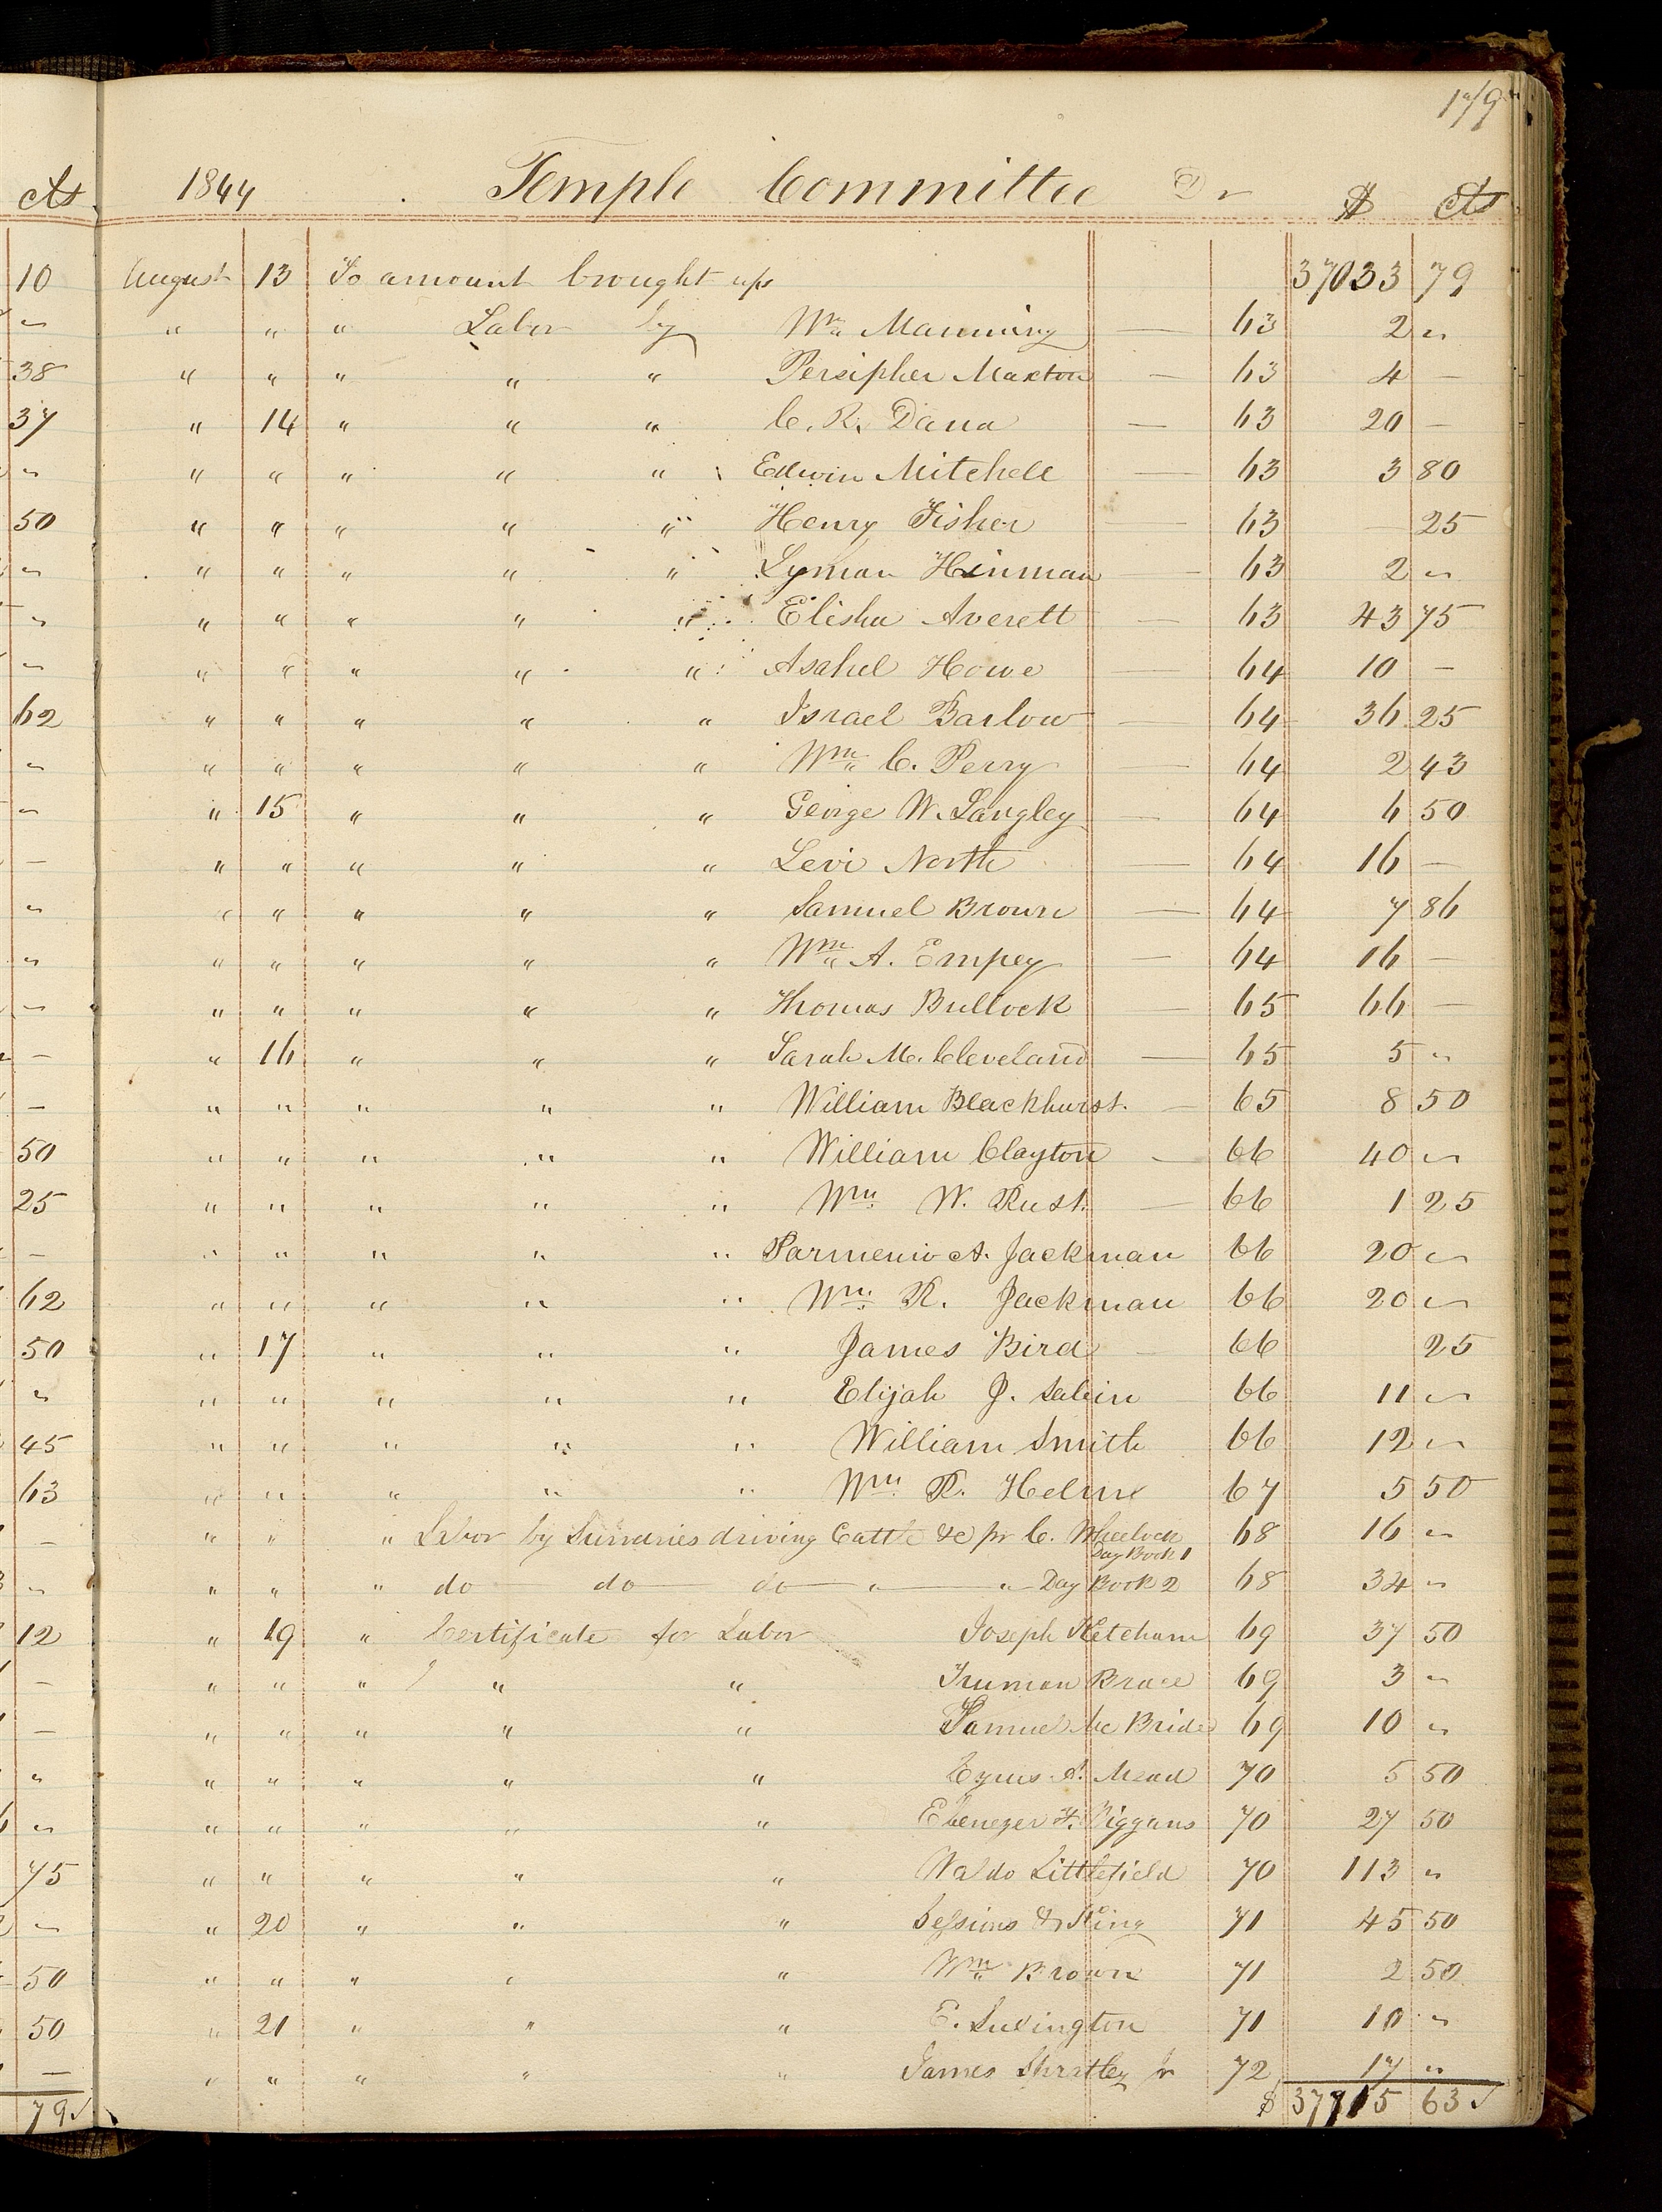 179
cts
1844 Temple Committee Dr $ cts
10
August 13 To amount brought up 37033 79
" " " Labor by Wm Manning — 63 2 "
38
" " " " " Persipher Maxton — 63 4 —
37
" 14 " " " C. R. Dana — 63 20 —
" " " " " Edwin Mitchell — 63 3 80
50
" " " " " Henry Fisher — 63 — 25
" " " " " Lyman Hinman — 63 2 "
" " " " " Elisha Averett — 63 43 75
" " " " " Asahel Howe — 64 10 —
62
" " " " " Israel Barlow — 64 36 25
" " " " " Wm C. Perry — 64 2 43
" 15 " " " George W. Langley — 64 6 50
" " " " " Levi North — 64 16 —
" " " " " Samuel Brown — 64 7 86
" " " " " Wm A. Empey — 64 16 —
" " " " " Thomas Bullock — 65 66 —
" 16 " " " Sarah M. Cleveland — 65 5 "
" " " " " William Blackhurst. — 65 8 50
50
" " " " " William Clayton — 66 40 "
25
" " " " " Wm W. Rust. — 66 1 25
" " " " " Parmenio A. Jackman 66 20 "
62
" " " " " Wm R. Jackman 66 20 "
50
" 17 " " " James Bird — 66 25
" " " " " Elijah J. Sabin 66 11 "
45
" " " " " William Smith 66 12 "
63
" " " " " Wm R. Helm 67 5 50
" " " Labor by Sundries driving Cattle &c pr C. Wheelock Day Book 1 68 16 "
" " " do do do " " Day Book 2 68 34 "
12
" 19 " Certificate for Labor Joseph Ketcham 69 37 50
" " " " " Truman Brace 69 3 "
" " " " " Samuel Mc Bride 69 10 "
" " " " " Cyrus Mead 70 5 50
" " " " " Ebenezer F. Wiggans 70 27 50
75
" " " " " Waldo Littlefield 70 113 "
" 20 " " " Sessions & King 71 45 50
50
" " " " " Wm Brown 71 2 50
50
" 21 " " " E. Luddington 71 10 "
" " " " " James Shratley Jr 72 17 "
79
$ 37715 63